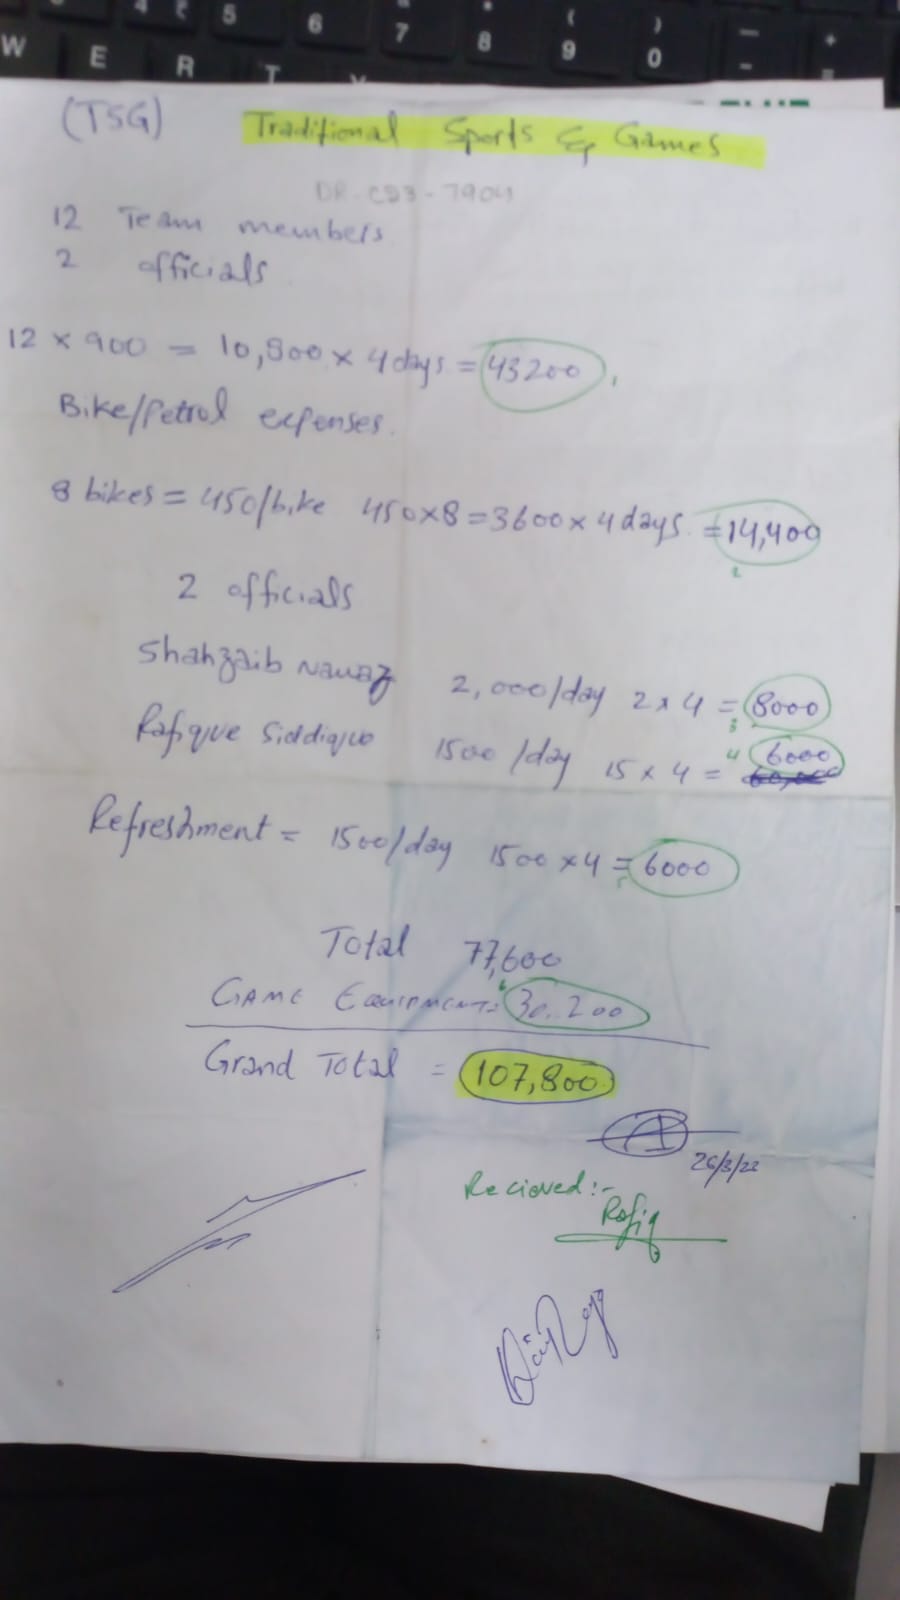 (TSG) Traditional Sports & Games
DR-CS3-7904
12 Team members
2 officials
12 × 900 = 10,800 × 4 days = 43200
1
Bike/Petrol expenses.
8 bikes = 450/bike 450×8=3600 × 4 days =14,400
2
2 officials
Shahzaib Nawaz 2,000/day 2 × 4 = 8000
3
Rafique Siddique 1500 /day 15 × 4 = 6000
4
Refreshment = 1500/day 1500 ×4 = 6000
5
Total 77,600
6
GAME EQUIPMENT= 30,200
Grand Total = 107,800
26/3/22
Recieved:-
Rafiq